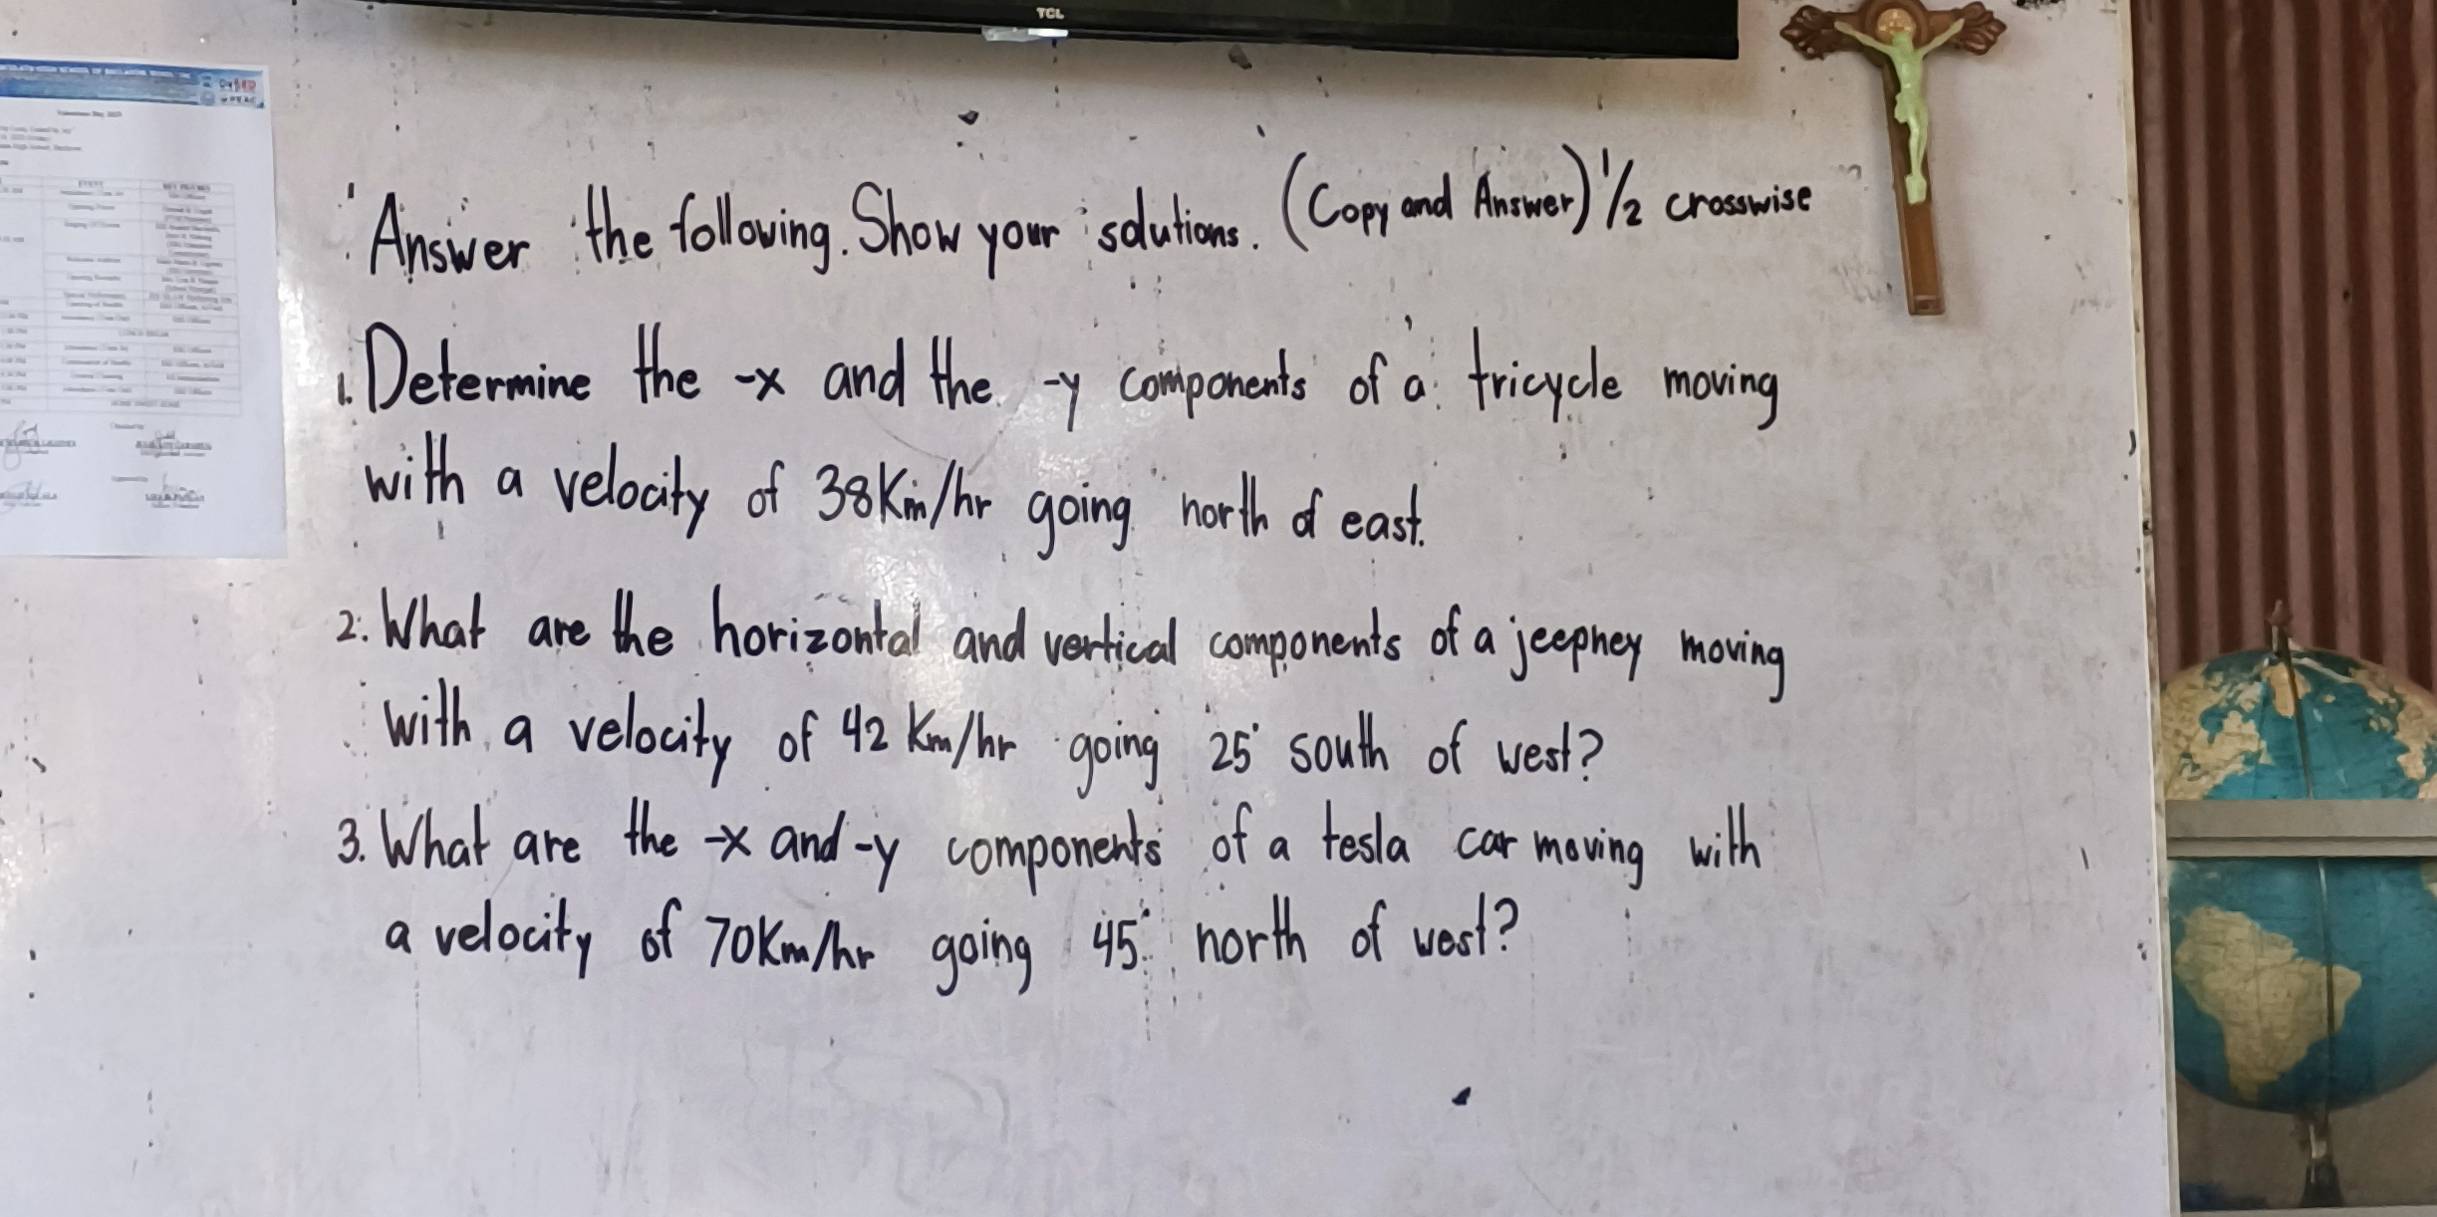 TCL
Answer the following. Show your solutions. (Copy and Answer) 1/2 crosswise
1. Determine the -x and the -y components of a tricycle moving
with a velocity of 38Km/hr going north of east.
2. What are the horizontal and vertical components of a jeepney moving
with a velocity of 42 Km/hr going 25° south of west?
3. What are the -x and -y components of a tesla car moving with
a velocity of 70Km/hr going 45° north of west?